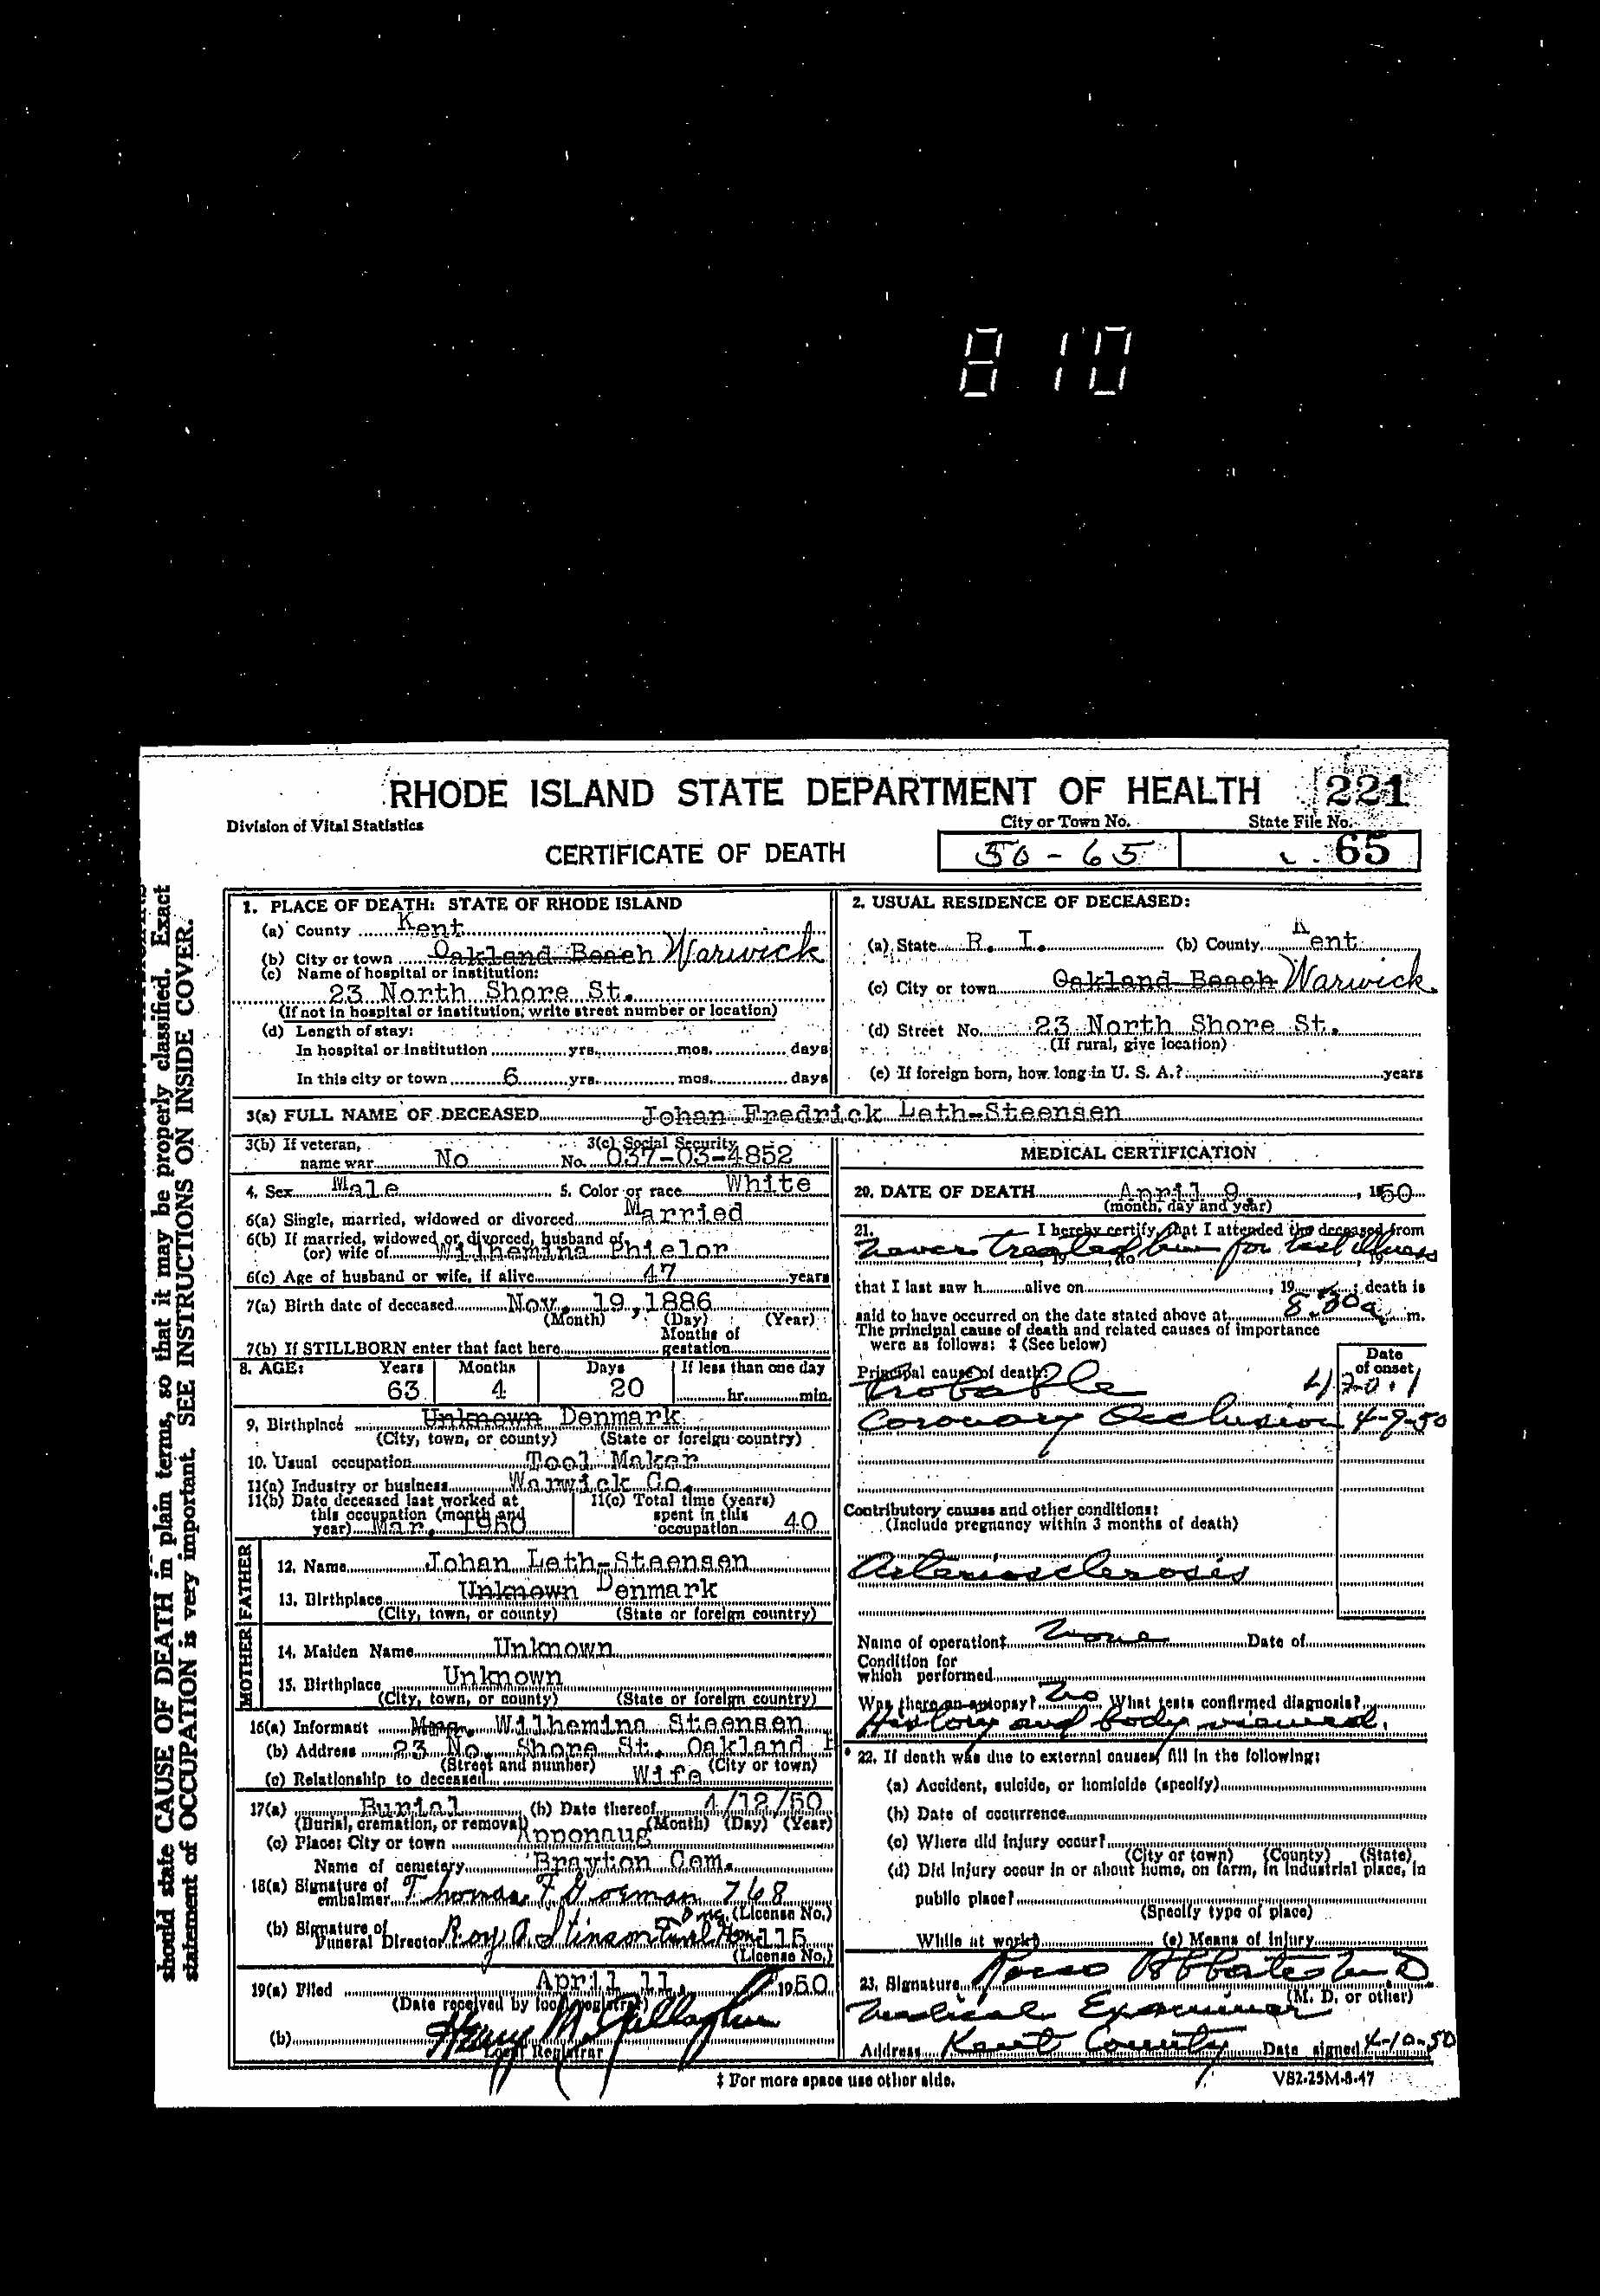 810
RHODE ISLAND STATE DEPARTMENT OF HEALTH 221
Division of Vital Statistics City or Town No. State File No.
CERTIFICATE OF DEATH 50-65 65
should state CAUSE OF DEATH in plain terms, so that it may be properly classified. Exact
statement of OCCUPATION is very important. SEE INSTRUCTIONS ON INSIDE COVER.
1. PLACE OF DEATH: STATE OF RHODE ISLAND
(a) County Kent
(b) City or town Oakland Beach Warwick
(c) Name of hospital or institution:
23 North Shore St.
(If not in hospital or institution, write street number or location)
(d) Length of stay:
In hospital or institution yrs. mos. days
In this city or town 6 yrs. mos. days
2. USUAL RESIDENCE OF DECEASED:
(a) State R. I. (b) County Kent
(c) City or town Oakland Beach Warwick.
(d) Street No. 23 North Shore St.
(If rural, give location)
(e) If foreign born, how long in U. S. A.? years
3(a) FULL NAME OF DECEASED Johan Fredrick Leth-Steensen
3(b) If veteran, 3(c) Social Security
name war No No. 037-03-4852
4. Sex Male 5. Color or race White
6(a) Single, married, widowed or divorced Married
6(b) If married, widowed or divorced, husband of,
(or) wife of Wilhemina Phielor
6(c) Age of husband or wife, if alive 47 years
7(a) Birth date of deceased Nov. 19,1886
(Month) (Day) (Year)
Months of
7(b) If STILLBORN enter that fact here gestation
8. AGE: Years Months Days If less than one day
63 4 20 hr. min.
9. Birthplace Unknown Denmark
(City, town, or county) (State or foreign country)
10. Usual occupation Tool Maker
11(a) Industry or business Warwick Co.
11(b) Date deceased last worked at 11(c) Total time (years)
this occupation (month and spent in this
year) Mar. 1950 occupation 40
FATHER
12. Name Johan Leth-Steensen
13. Birthplace Unknown Denmark
(City, town, or county) (State or foreign country)
MOTHER
14. Maiden Name Unknown
15. Birthplace Unknown
(City, town, or county) (State or foreign country)
16(a) Informant Mrs. Wilhemina Steensen
(b) Address 23 No. Shore St. Oakland B
(Street and number) (City or town)
(c) Relationship to deceased Wife
17(a) Burial (b) Date thereof 4/12/50
(Burial, cremation, or removal) (Month) (Day) (Year)
(c) Place: City or town Apponaug
Name of cemetery Brayton Cem.
18(a) Signature of
embalmer Thomas F Gorman 768
(License No.)
(b) Signature of
Funeral Director Roy A. Stinson Funl Home Inc 115
(License No.)
19(a) Filed April 11, 1950
(Date received by local registrar)
(b) Henry M. Gallagher
Local Registrar
MEDICAL CERTIFICATION
20. DATE OF DEATH April 9, 1950
(month, day and year)
21. I hereby certify that I attended the deceased from
never treated him for last illness
19 , to , 19
that I last saw h alive on , 19 ; death is
said to have occurred on the date stated above at 8.30a m.
The principal cause of death and related causes of importance
were as follows: ‡ (See below)
Date
of onset
Principal cause of death:
Probable 420.1
Coronary Occlusion 4-9-50
Contributory causes and other conditions:
(Include pregnancy within 3 months of death)
Arteriosclerosis
Name of operation‡ None Date of
Condition for
which performed
Was there an autopsy? No What tests confirmed diagnosis?
History and body viewed.
22. If death was due to external causes, fill in the following:
(a) Accident, suicide, or homicide (specify)
(b) Date of occurrence
(c) Where did injury occur?
(City or town) (County) (State)
(d) Did injury occur in or about home, on farm, in industrial place, in
public place?
(Specify type of place)
While at work? (e) Means of injury
23. Signature Rocco
(M. D. or other)
Medical Examiner
Address Kent County Date signed 4-10-50
‡ For more space use other side. VS2-25M-8-47